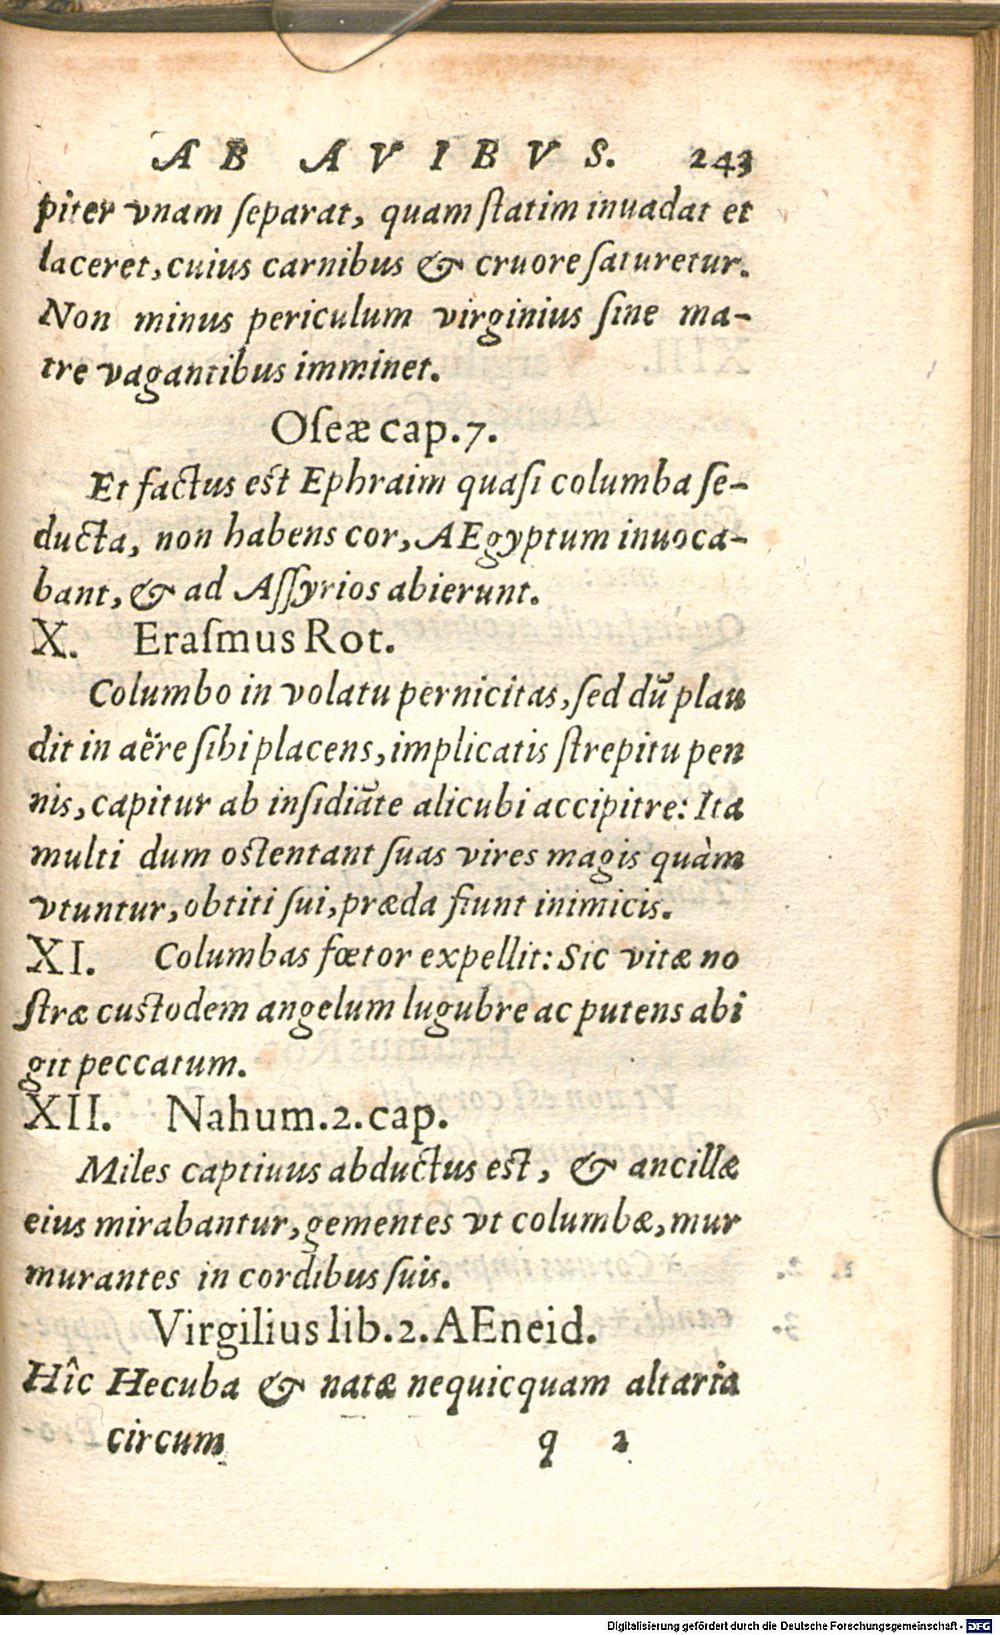 AB AVIBVS. 243
piter vnam ſeparat, quam ſtatim inuadat et
laceret, cuius carnibus & cruore ſaturetur.
Non minus periculum virginius ſine ma-
tre vagantibus imminet.
Oſeæ cap.7.
Et factus est Ephraim quaſi columba ſe-
ducta, non habens cor, AEgyptum inuoca-
bant, & ad Aſſyrios abierunt.
X. Eraſmus Rot.
Columbo in volatu pernicitas, ſed dũ plau
dit in aëre ſibi placens, implicatis ſtrepitu pen
nis, capitur ab inſidiãte alicubi accipitre: Ita
multi dum ostentant ſuas vires magis quàm
vtuntur, obtiti ſui, præda fiunt inimicis.
XI. Columbas fœtor expellit: Sic vitæ no
ſtræ custodem angelum lugubre ac putens abi
git peccatum.
XII. Nahum.2.cap.
Miles captiuus abductus est, & ancillæ
eius mirabantur, gementes vt columbæ, mur
murantes in cordibus ſuis.
Virgilius lib.2.AEneid.
Hîc Hecuba & natæ nequicquam altaria
circum
q 2
Digitalisierung gefördert durch die Deutsche Forschungsgemeinschaft - DFG